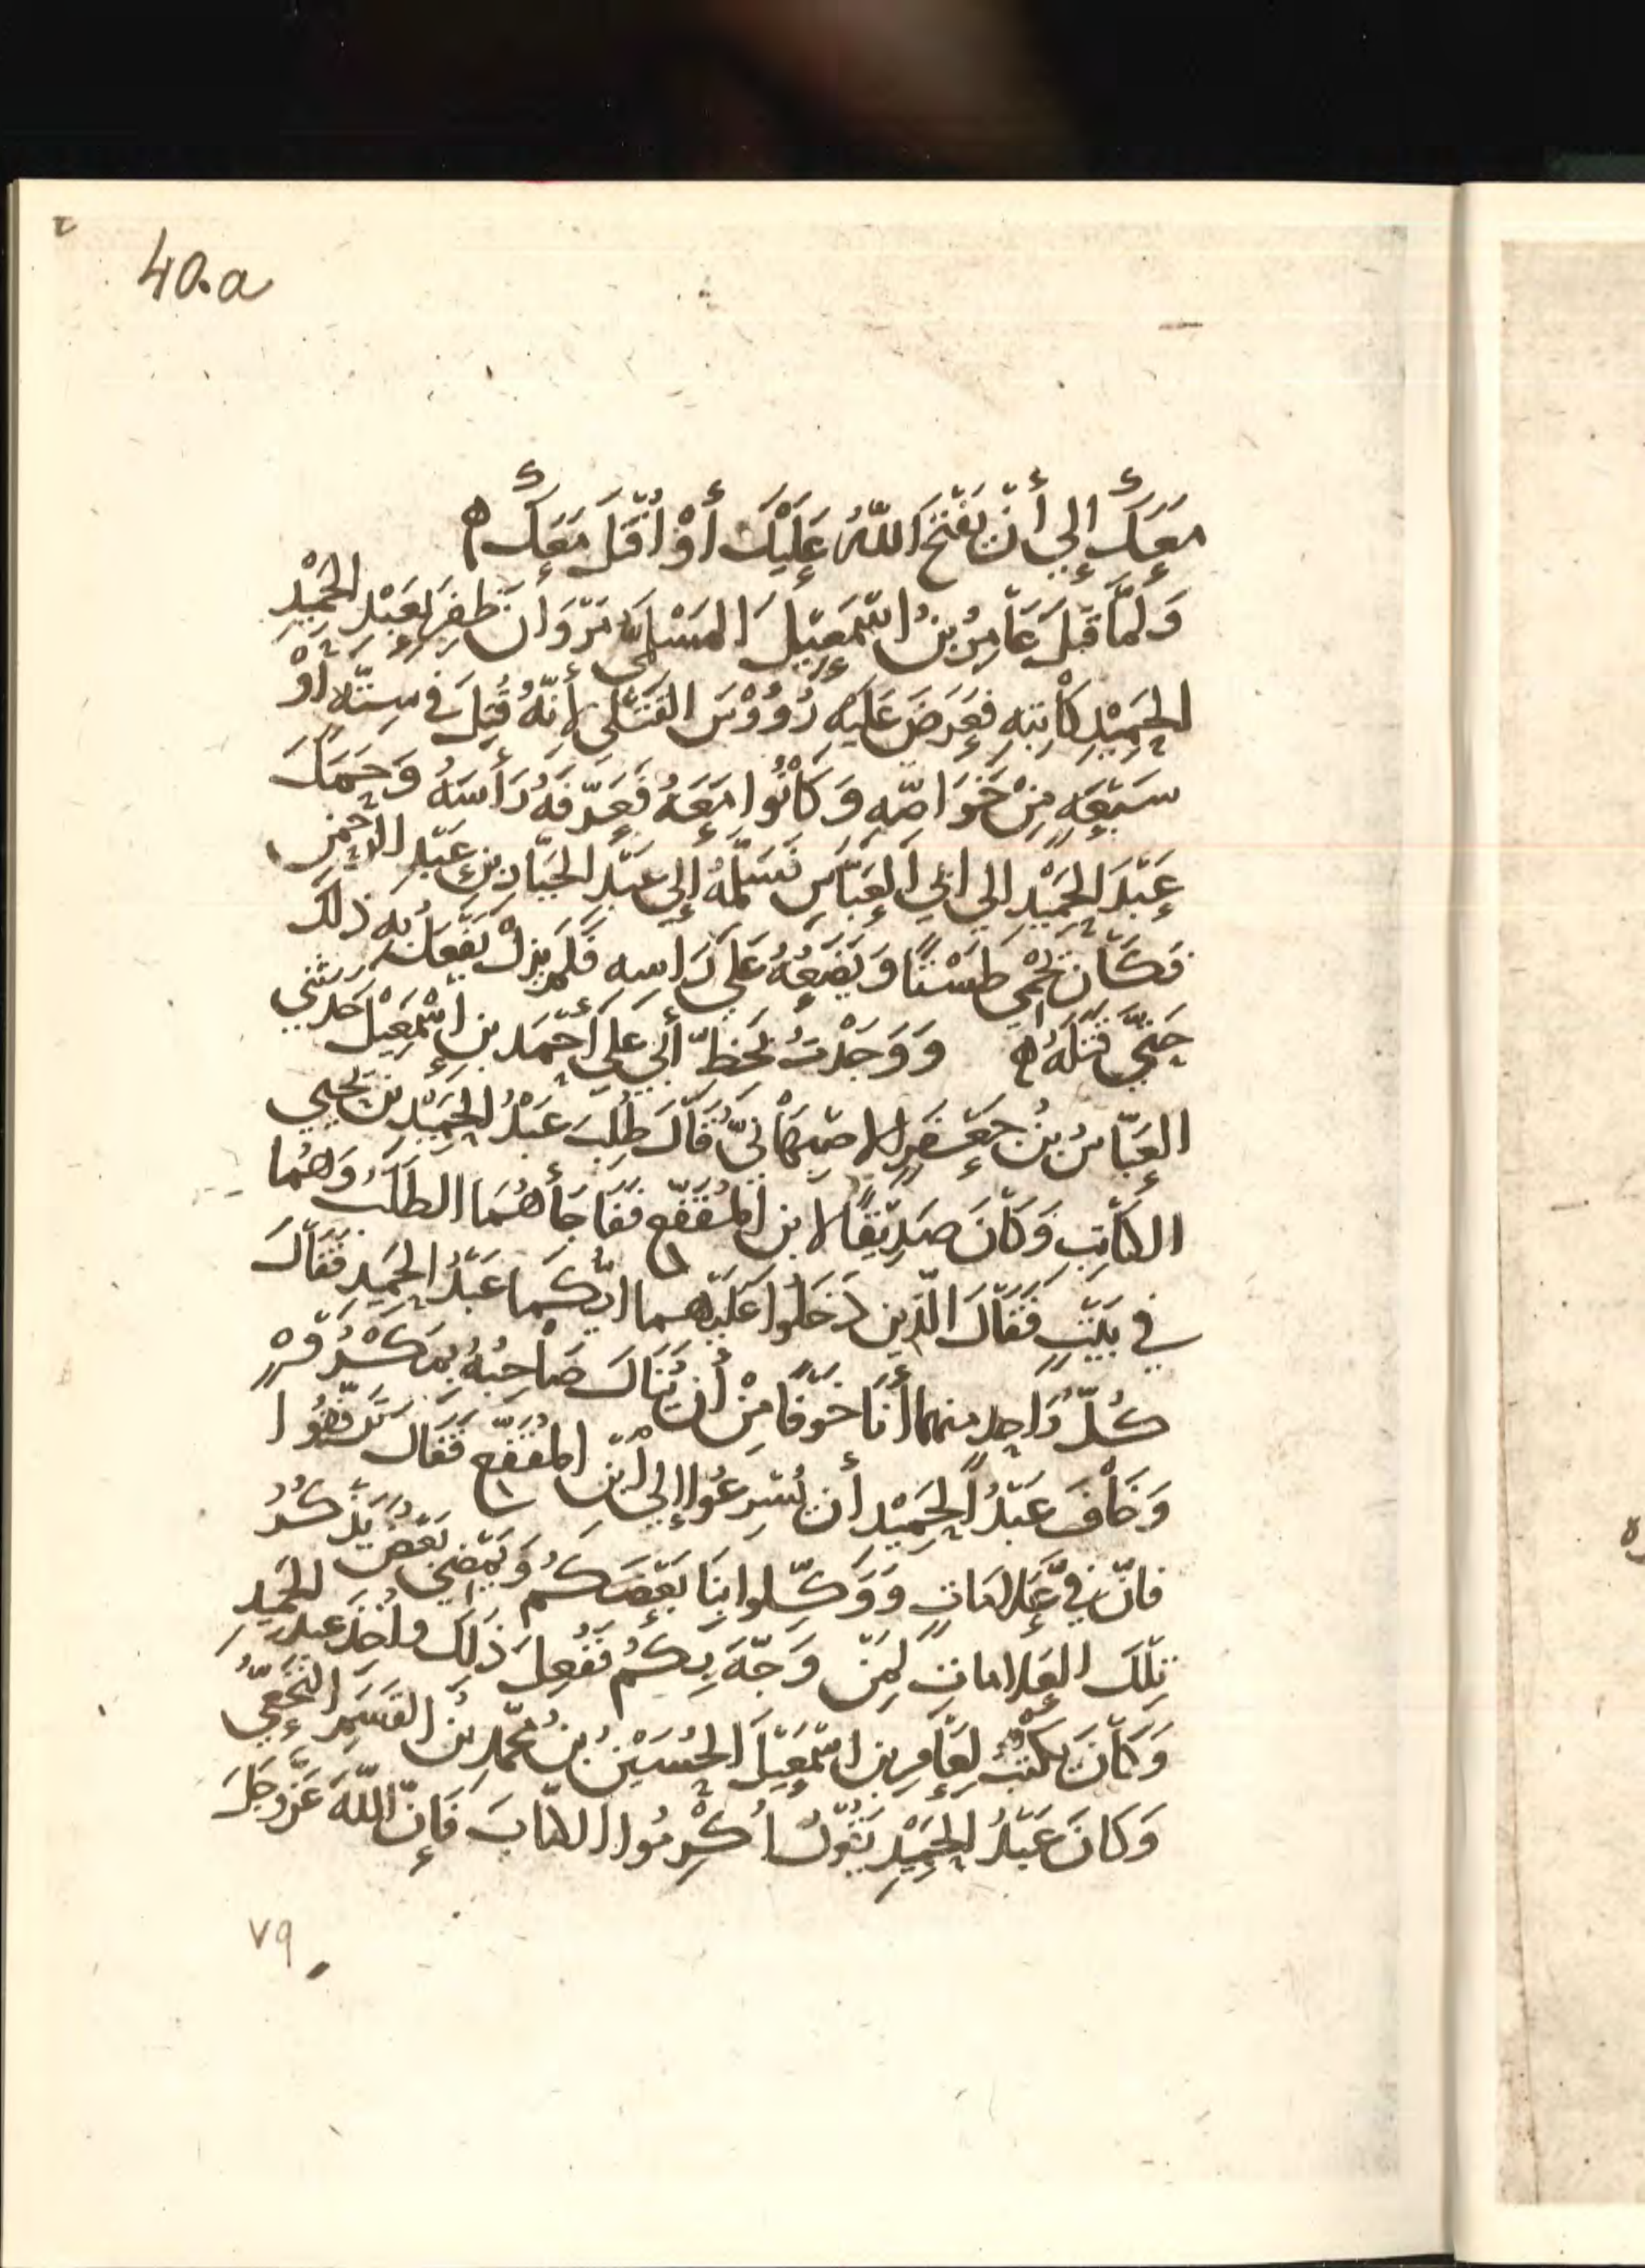 40.a
مَعَكَ إِلَى أَنْ يَفْتَحَ اللّٰهُ عَلَيْكَ أَوْ أُقْتَلَ مَعَكَ ه
وَلَمَّا قَتَلَ عَامِرُ بْنُ اسْمَعِيلَ المَسْلِيُّ مَرْوَانَ ظَفِرَ بِعَبْدِ الحَمِيْدِ
الحَمِيْدِ كَاتِبِهِ فَعَرَضَ عَلَيْهِ رُؤُوْسَ القَتْلَى لِأَنَّهُ قُتِلَ فِي سِتَّةٍ أَوْ
سَبْعَةٍ مِنْ خَوَاصِّهِ وَكَانُوا مَعَهُ فَعَرَّفَهُ رَأْسَهُ وَحَمَلَ
عَبْدَ الحَمِيْدِ إلي ابي العَبَّاسِ فَسَلَّمَهُ إِلى عَبْدِ الجَبَّارِ بنِ عَبْدِ الرَّحْمٰنِ
فَكَانَ يَحْمِي طَسْتًا وَيَضَعُهُ عَلَى رَاسِهِ فَلَمْ يَزَلْ يَفْعَلُ بِهِ ذٰلِكَ
حَتَّي قَتَلَهُ ه وَوَجَدْتُ بِخَطِّ أَبِي عَلِي أَحْمَدَ بنِ إِسْمَعِيْلَ حَدَّثَنِي
العَبَّاسُ بْنُ جَعْفَرٍ الاصْبَهَانِيُّ قَالَ طُلِبَ عَبْدُ الحَمِيْدِ بْنُ يَحْيي
الكَاتِبِ وَكَانَ صَدِيْقًا لابنِ المُقَفَّعِ فَفَاجَأَهُمَا الطَّلَبُ وَهُمَا
فِي بَيْتٍ فَقَالَ الَّذِينَ دَخَلُوا عَلَيْهِمَا أَيُّكُمَا عَبْدُ الحَمِيدِ فَقَالَ
كُلُّ وَاحِدٍ مِنهُما أَنَا خَوْفًا مِنْ أَن يُنَالَ صَاحِبُهُ بِمَكْرُوْهٍ
وَخَافَ عَبْدُ الحَمِيْدِ أَن يُسْرِعُوا إِلى ابْنِ المُقَفَّعِ فَقَالَ تَرَفَّقُوا
فَانَّ فِيَّ عَلامَاتٍ وَوَكِّلوا بِنَا بَعْضَكُم وَيَمْضِي بَعْضٌ يَذْكُرُ
تِلْكَ العَلامَاتِ لِمَنْ وَجَّهَ بِكُم فَفُعِلَ ذَلِكَ وَأُخِذَ عَبْدُ الحَمِيدِ
وَكَانَ يَكْتُبُ لِعَامِرِ بنِ اسْمَعِيْلَ الحُسَيْنُ بْنُ مُحَمَّدِ بْنِ القَسَمِ النَّخَعِيُّ
وَكَانَ عَبْدُ الحَمِيْدِ يَقُوْلُ أَكْرِمُوا الكُتَّابَ فَإِنَّ اللّٰهَ عَزَّ وَجَلَّ
٧٩